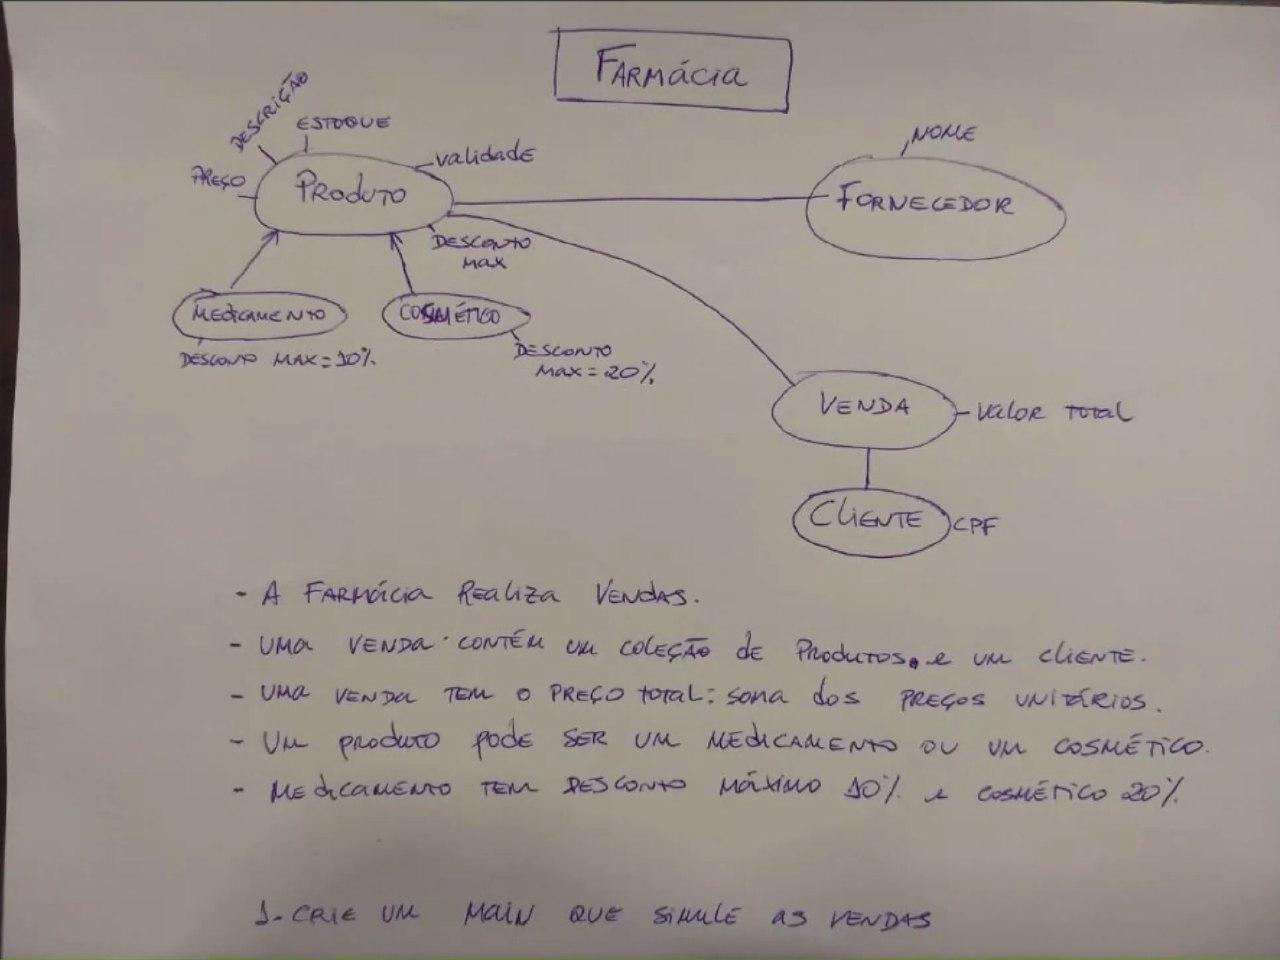 FARMÁCIA
DESCRIÇÃO
ESTOQUE
validade
NOME
PREÇO
PRODUTO
FORNECEDOR
DESCONTO
MAX
MEDICAMENTO
COSMÉTICO
DESCONTO MAX = 10%
DESCONTO
MAX = 20%
VENDA
VALOR TOTAL
CLIENTE
CPF
- A FARMÁCIA REALIZA VENDAS.
- UMA VENDA CONTÉM UM COLEÇÃO DE PRODUTOS. E UM CLIENTE.
- UMA VENDA TEM O PREÇO TOTAL: SOMA DOS PREÇOS UNITÁRIOS.
- UM PRODUTO PODE SER UM MEDICAMENTO OU UM COSMÉTICO.
- MEDICAMENTO TEM DESCONTO MÁXIMO 10% E COSMÉTICO 20%
1- CRIE UM MAIN QUE SIMULE AS VENDAS